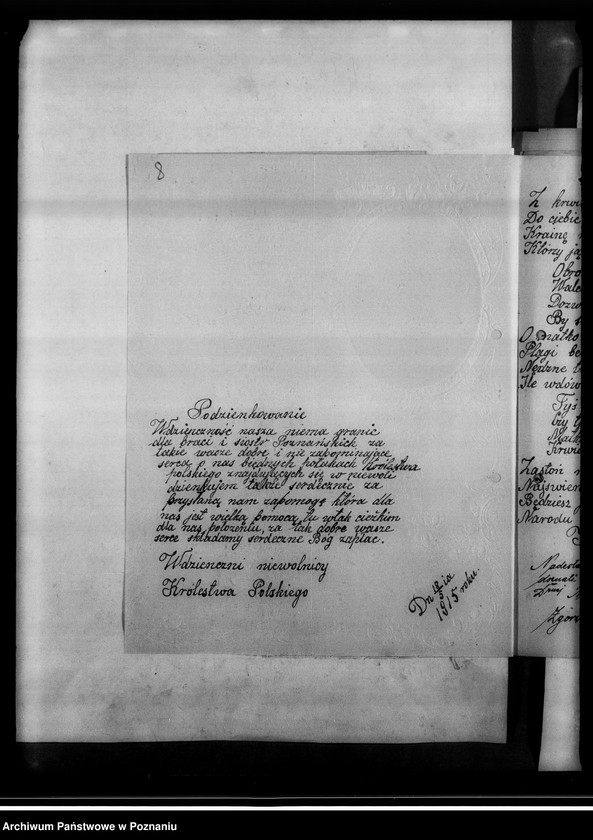 8
Podzienkowanie
Wdzięczność nasza niema granic
dla braci i sióstr Poznańskich za
takie wasze dobre i nie zapominające
serca o nas biednych polakach Królestwa
polskiego znajdujących się w niewoli
dzienkujem także serdecznie za
przysłaną nam zapomogę która dla
nas jest wielką pomocą tu wtak cieżkim
dla nas położeniu, za tak dobre wasze
serce składamy serdeczne Bóg zapłac.
Wdzienczni niewolnicy
Królestwa Polskiego
Dn 12/5 ia
1915 roku.
Z krwi
Do ciebie
Krainę
Którzy
Obro
Wale
Dozw
By
O matko
Plagi be
Nędzne
Ile wdów
Tys
Matk
Krwi
Zasłoń
Najświen
Będziesz
Narodu
Archiwum Państwowe w Poznaniu